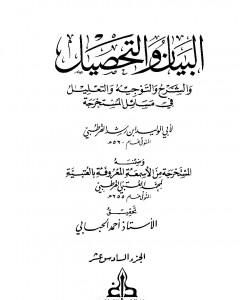 البيان والتحصيل
والشرح والتوجيه والتعليل
في مسائل المستخرجة
لأبي الوليد ابن رشد القرطبي
المتوفى عام ٥٢٠ هـ
وضمنه
المستخرجة من الأسمعة المعروفة بالعتبية
لمحمد العتبي القرطبي
المتوفى عام ٢٥٥ هـ
تحقيق
الأستاذ أحمد الحبابي
الجزء السادس عشر